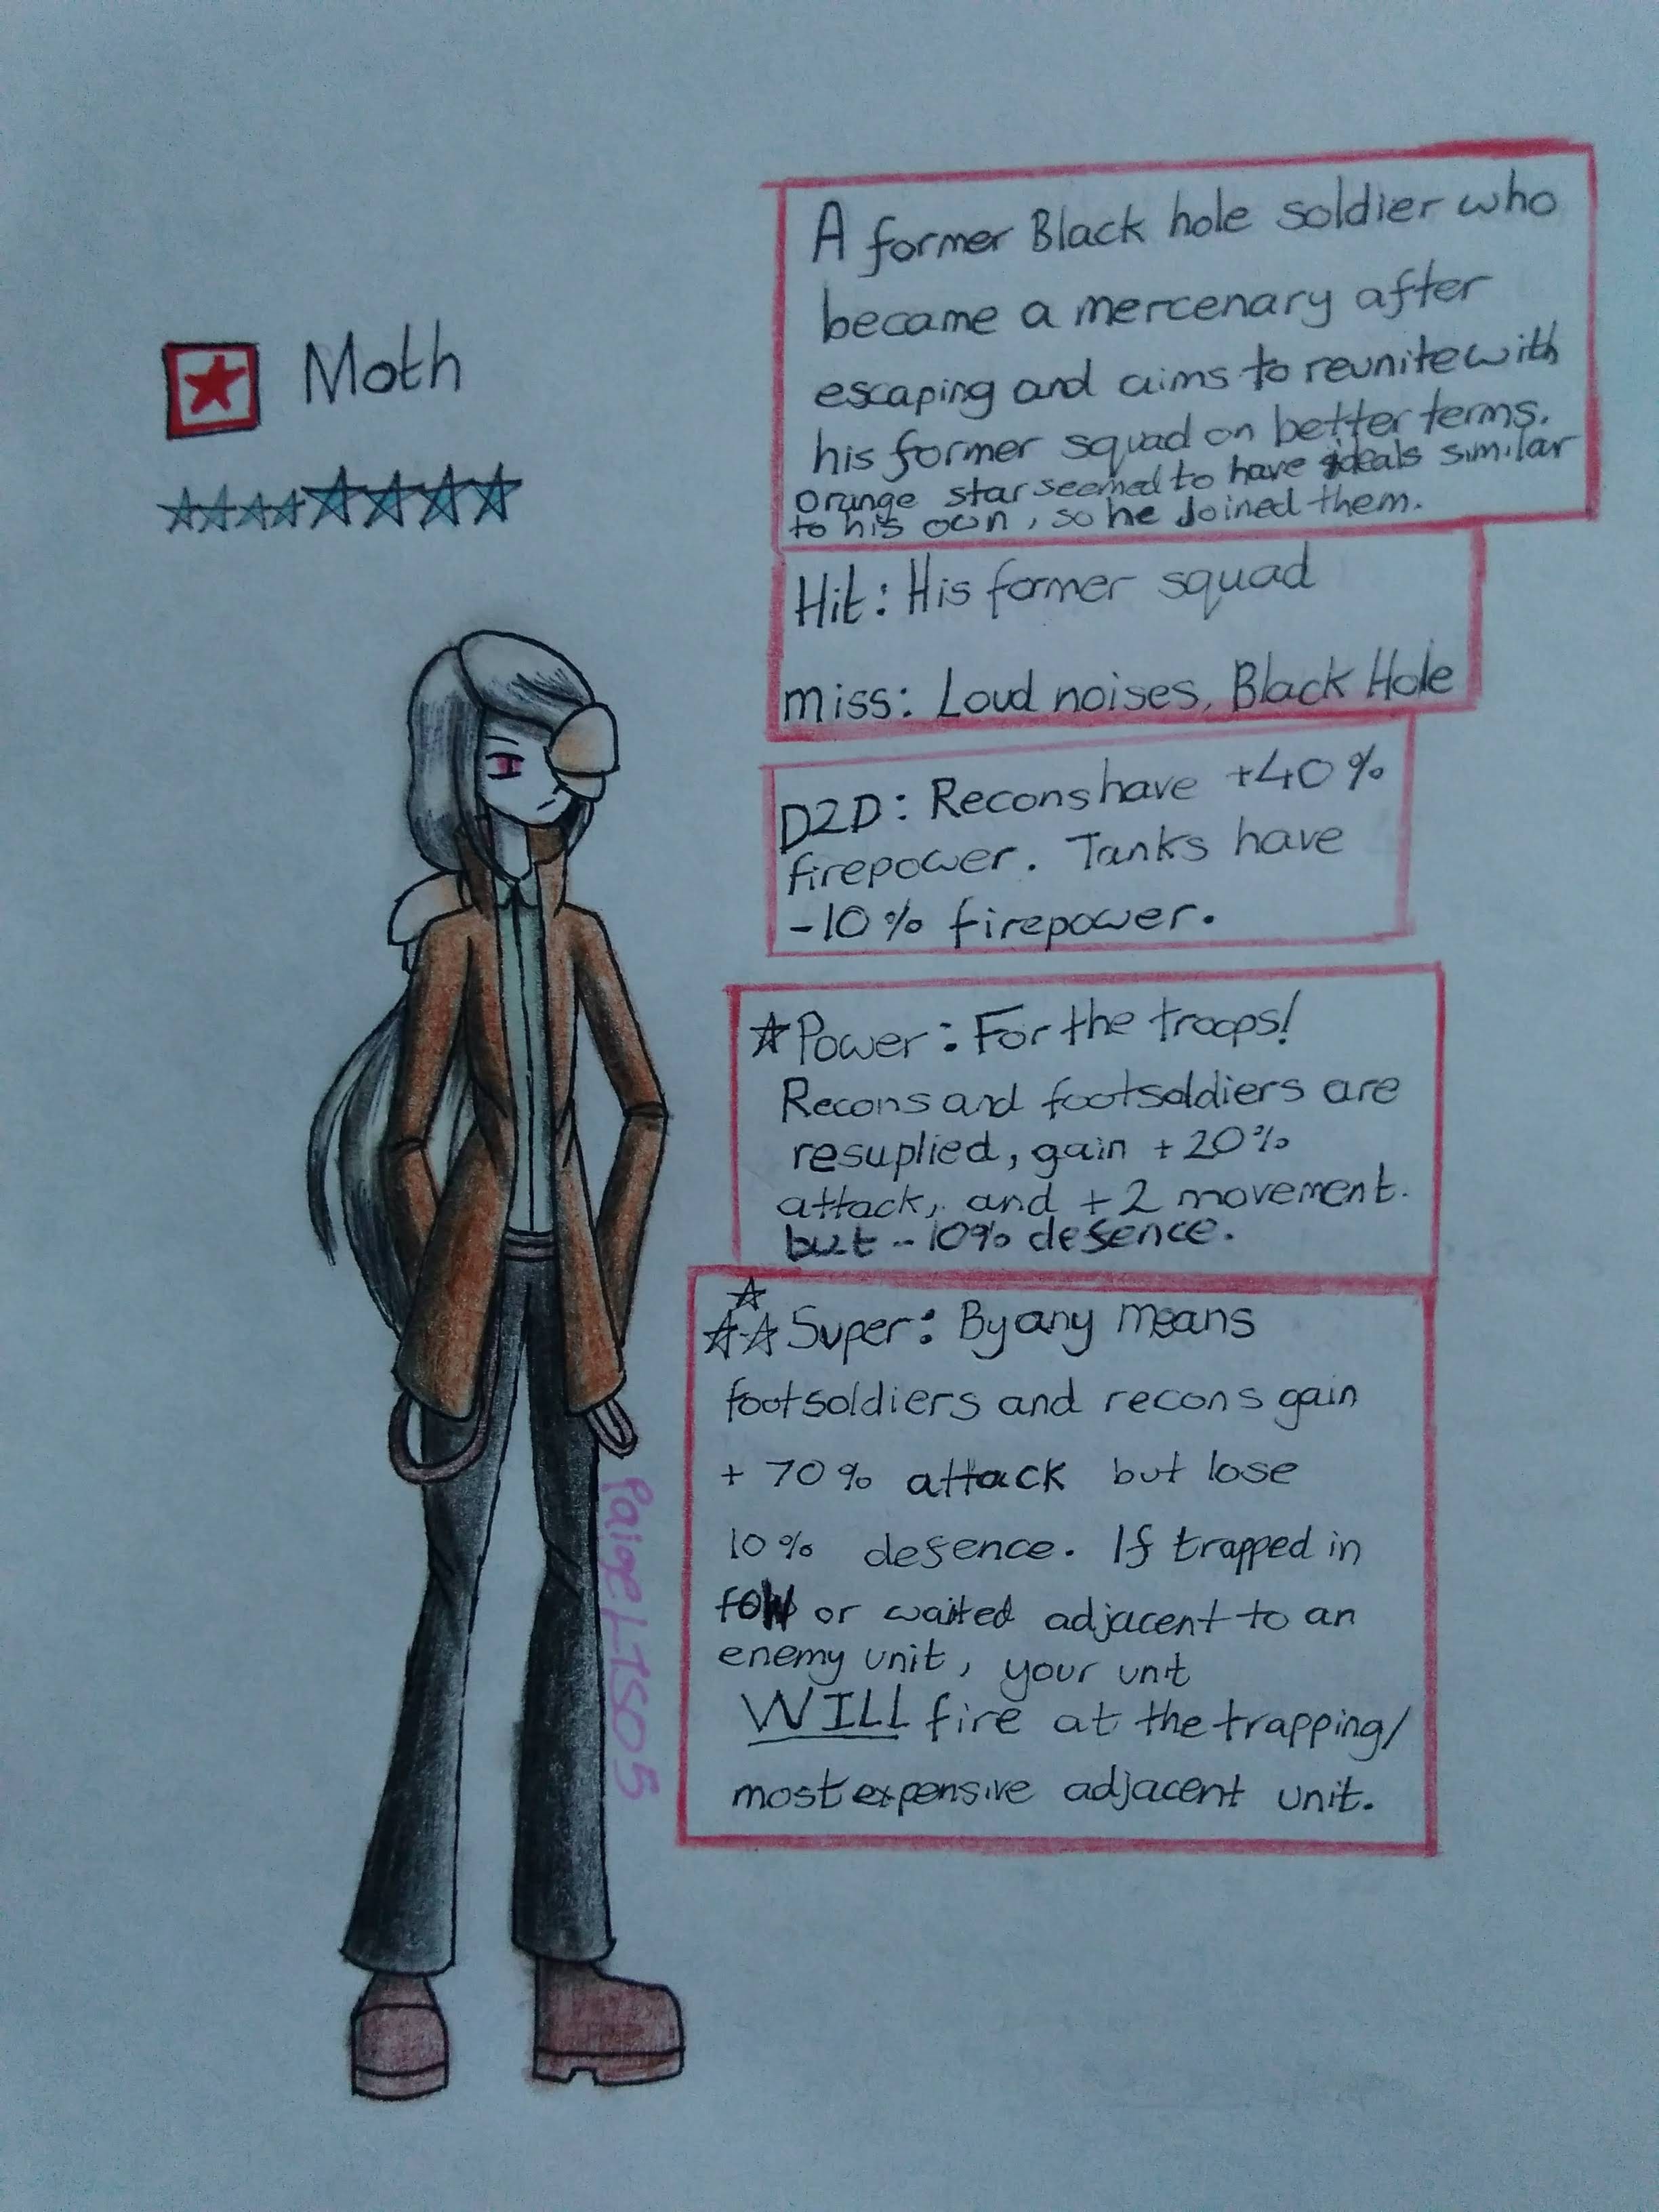 Moth
A former Black hole soldier who
became a mercenary after
escaping and aims to reunite with
his former squad on better terms.
Orange star seemed to have ideals similar
to his own, so he Joined them.
Hit: His former squad
miss: Loud noises, Black Hole
D2D: Recons have +40%
firepower. Tanks have
-10% firepower.
Power: For the troops!
Recons and footsoldiers are
resuplied, gain +20%
attack, and +2 movement.
but -10% defence.
Super: By any means
footsoldiers and recons gain
+ 70% attack but lose
10% defence. If trapped in
foW or waited adjacent to an
enemy unit, your unit
WILL fire at the trapping/
most expensive adjacent unit.